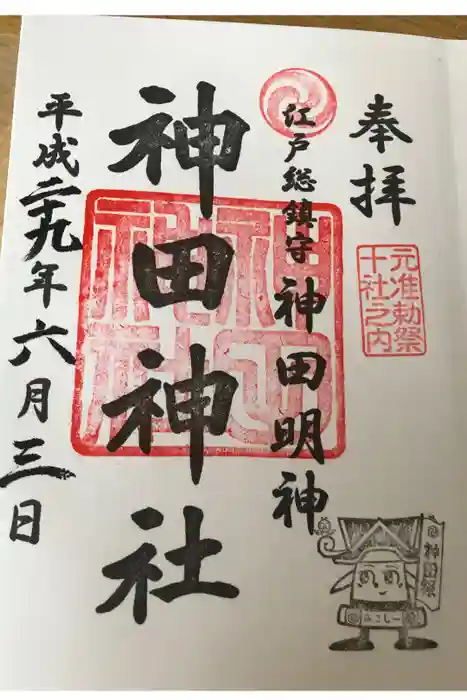 奉拝
元准勅祭
十社之内
江戸総鎮守
神田明神
神田神社
平成二十九年六月三日
神田祭
みこしー